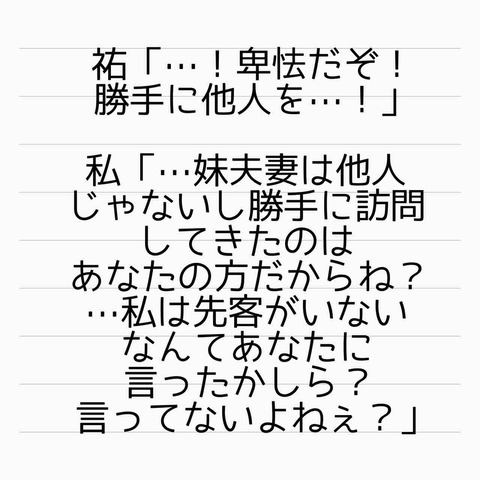 祐「…！卑怯だぞ！
勝手に他人を…！」
私「…妹夫妻は他人
じゃないし勝手に訪問
してきたのは
あなたの方だからね？
…私は先客がいない
なんてあなたに
言ったかしら？
言ってないよねぇ？」